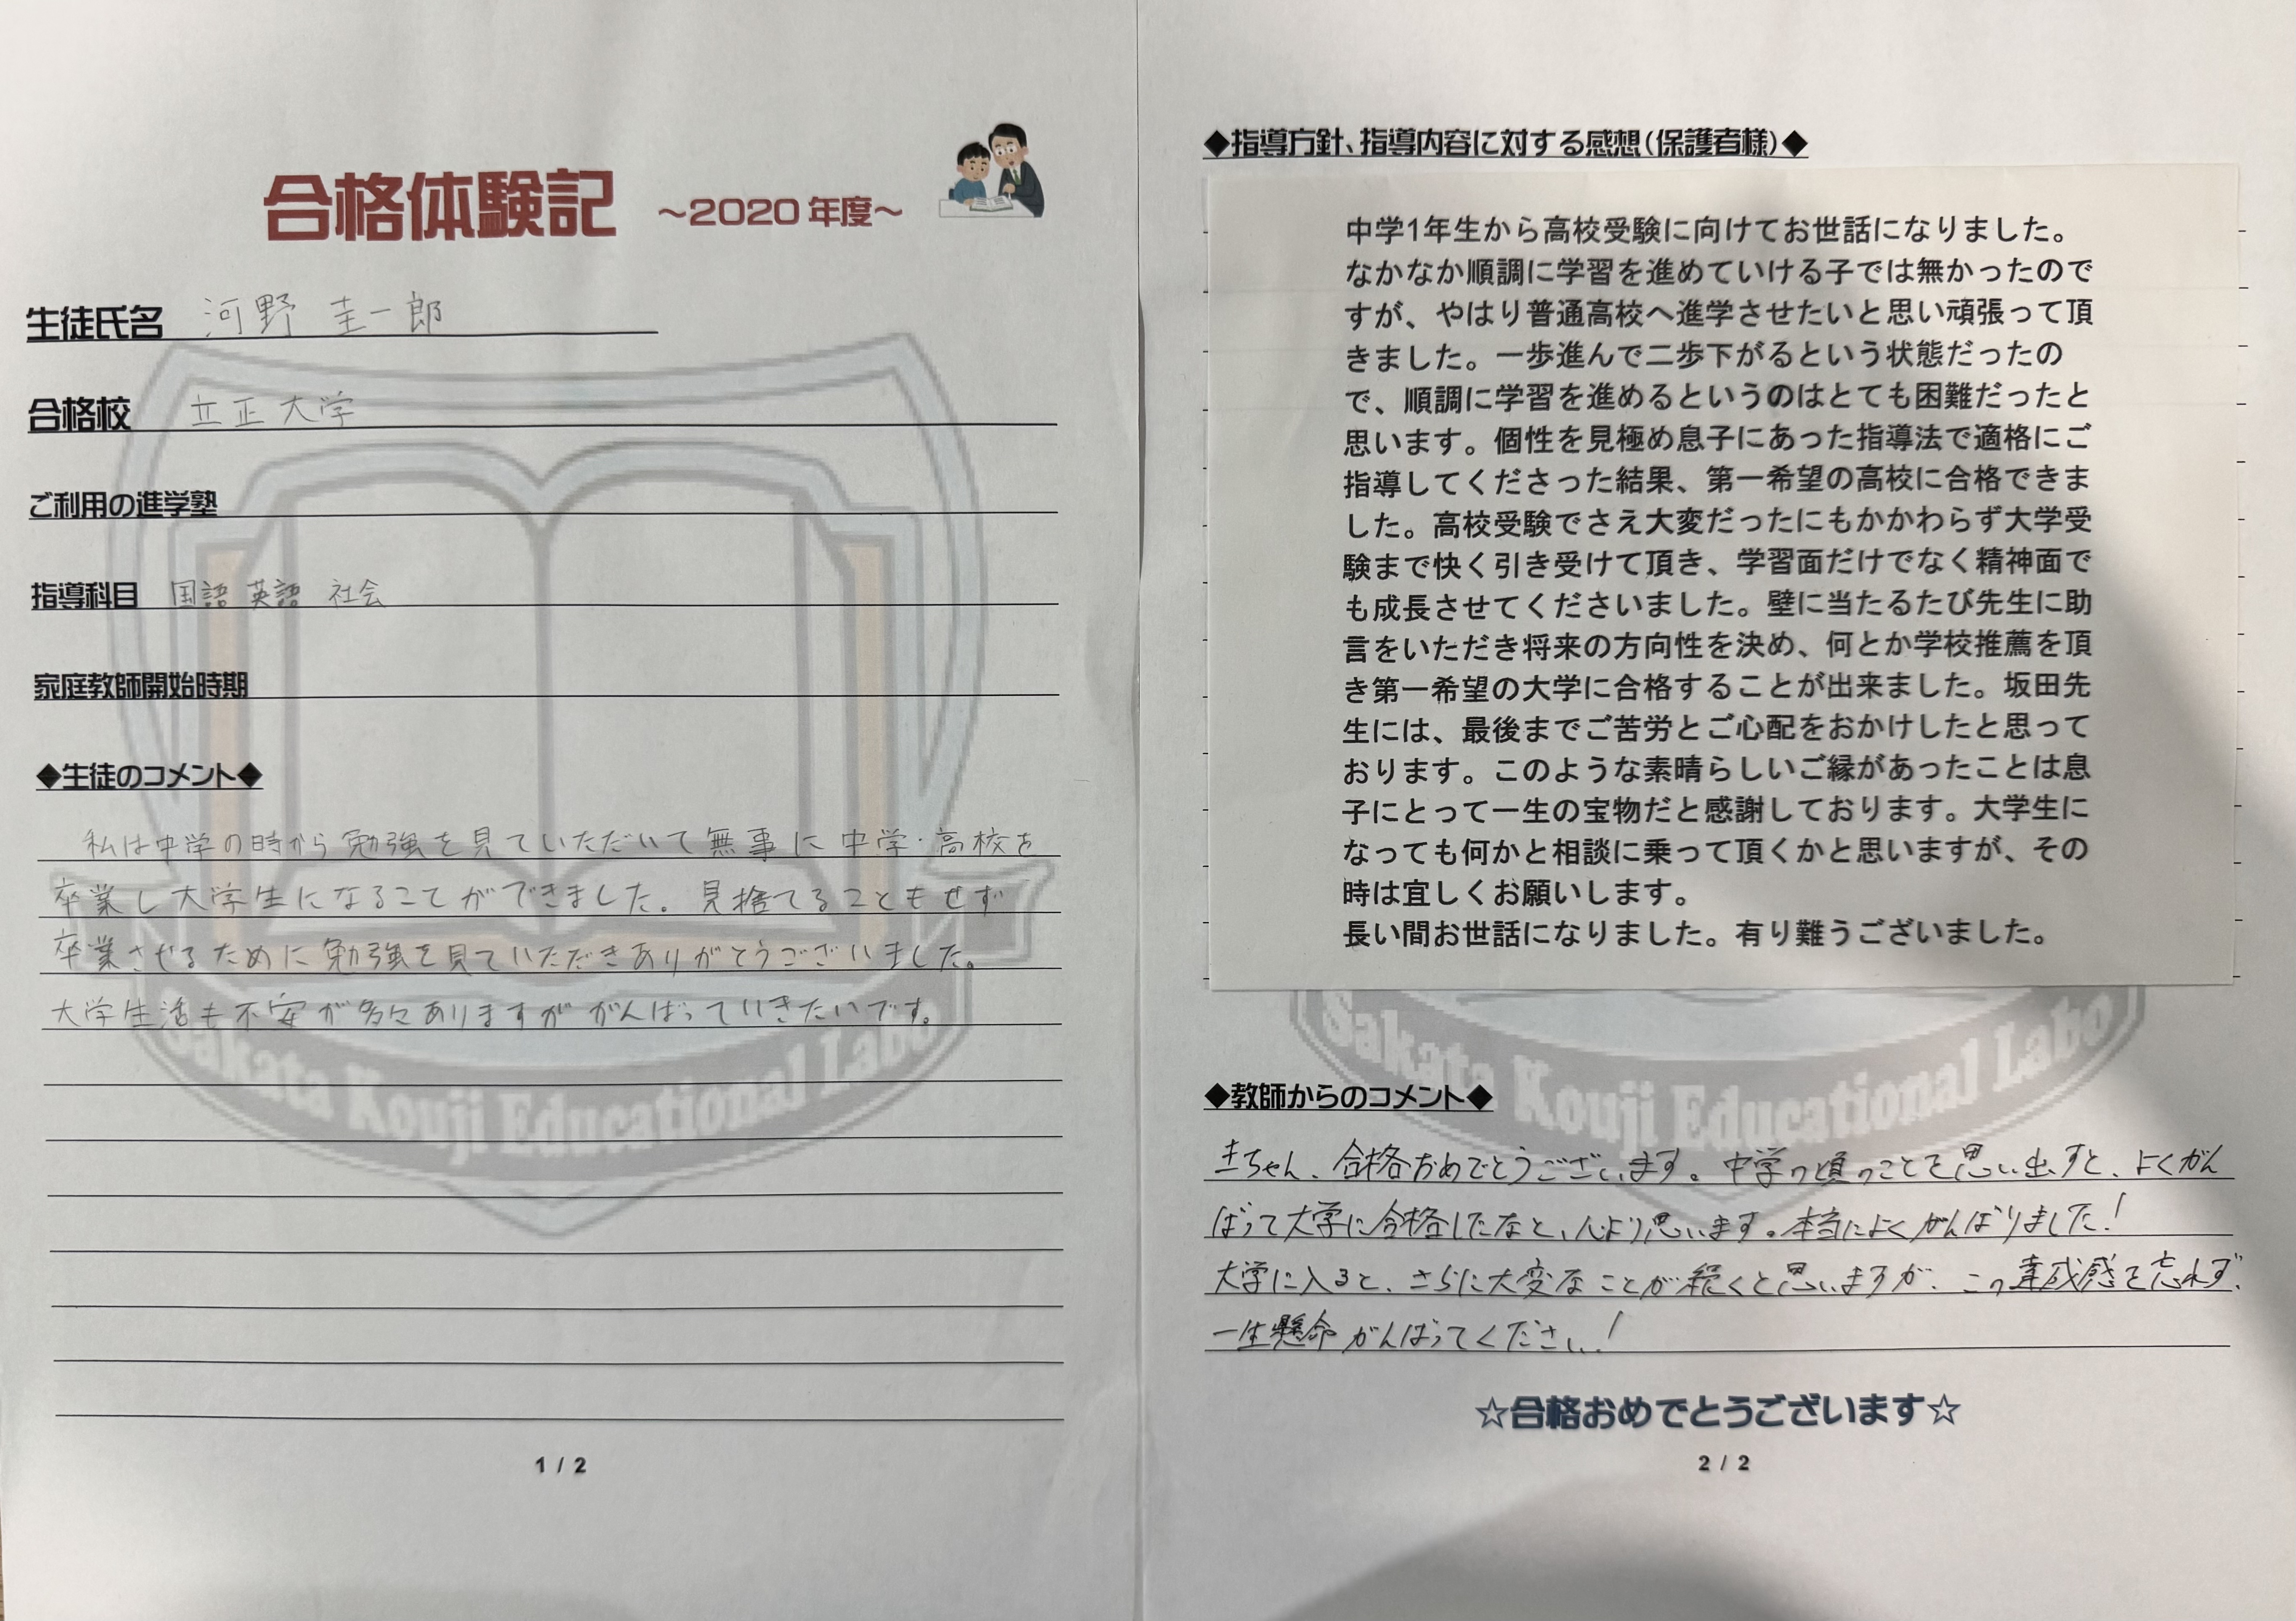 合格体験記 ～2020年度～
生徒氏名 河野 圭一郎
合格校 立正大学
ご利用の進学塾
指導科目 国語 英語 社会
家庭教師開始時期
◆生徒のコメント◆
私は中学の時から勉強を見ていただいて無事に中学・高校を
卒業し大学生になることができました。見捨てることもせず
卒業させるために勉強を見ていただきありがとうございました。
大学生活も不安が多々ありますががんばっていきたいです。
Sakata Kouji Educational Labo
1 / 2
◆指導方針、指導内容に対する感想(保護者様)◆
中学1年生から高校受験に向けてお世話になりました。
なかなか順調に学習を進めていける子では無かったので
すが、やはり普通高校へ進学させたいと思い頑張って頂
きました。一歩進んで二歩下がるという状態だったの
で、順調に学習を進めるというのはとても困難だったと
思います。個性を見極め息子にあった指導法で適格にご
指導してくださった結果、第一希望の高校に合格できま
した。高校受験でさえ大変だったにもかかわらず大学受
験まで快く引き受けて頂き、学習面だけでなく精神面で
も成長させてくださいました。壁に当たるたび先生に助
言をいただき将来の方向性を決め、何とか学校推薦を頂
き第一希望の大学に合格することが出来ました。坂田先
生には、最後までご苦労とご心配をおかけしたと思って
おります。このような素晴らしいご縁があったことは息
子にとって一生の宝物だと感謝しております。大学生に
なっても何かと相談に乗って頂くかと思いますが、その
時は宜しくお願いします。
長い間お世話になりました。有り難うございました。
Sakata Kouji Educational Labo
◆教師からのコメント◆
圭ちゃん、合格おめでとうございます。中学の頃のことを思い出すと、よくがん
ばって大学に合格したなと、心より思います。本当によくがんばりました！
大学に入ると、さらに大変なことが続くと思いますが、この達成感を忘れず、
一生懸命がんばってください！
☆合格おめでとうございます☆
2 / 2